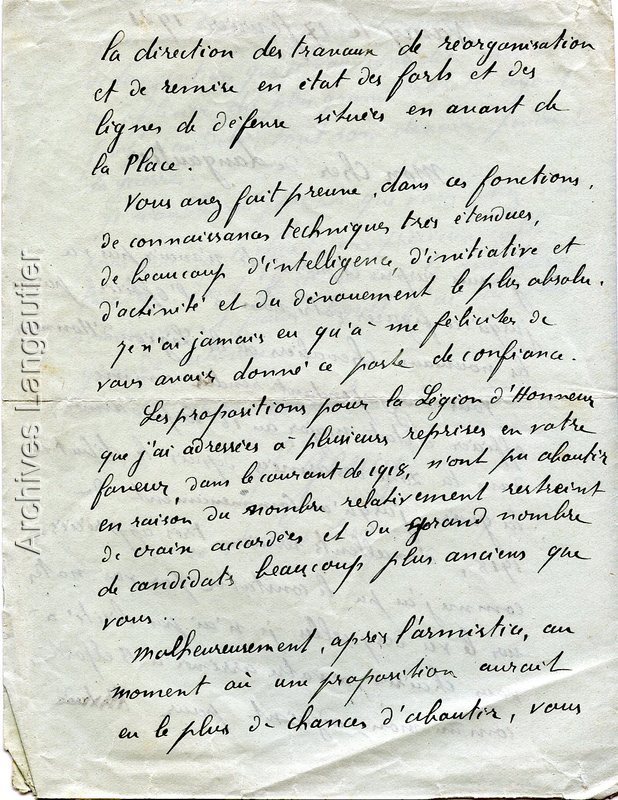 la direction des travaux de réorganisation
et de remise en état des forts et des
lignes de défense situées en avant de
la Place.
Vous avez fait preuve, dans ces fonctions,
de connaissances techniques très étendues,
de beaucoup d'intelligence, d'initiative et
d'activité et du dévouement le plus absolu.
Je n'ai jamais eu qu'à me féliciter de
vous avoir donné ce poste de confiance.
Les propositions pour la Légion d'Honneur
que j'ai adressées à plusieurs reprises en votre
faveur, dans le courant de 1918, n'ont pu aboutir
en raison du nombre relativement restreint
de croix accordées et du grand nombre
de candidats beaucoup plus anciens que
vous.
Malheureusement, après l'armistice, au
moment où une proposition aurait
eu le plus de chances d'aboutir, vous
Archives Langautier